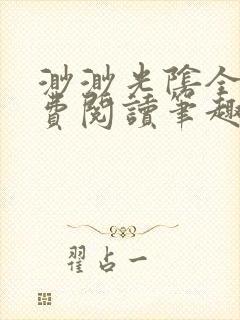 渺渺光陰全
費閱讀筆趣
翟占一